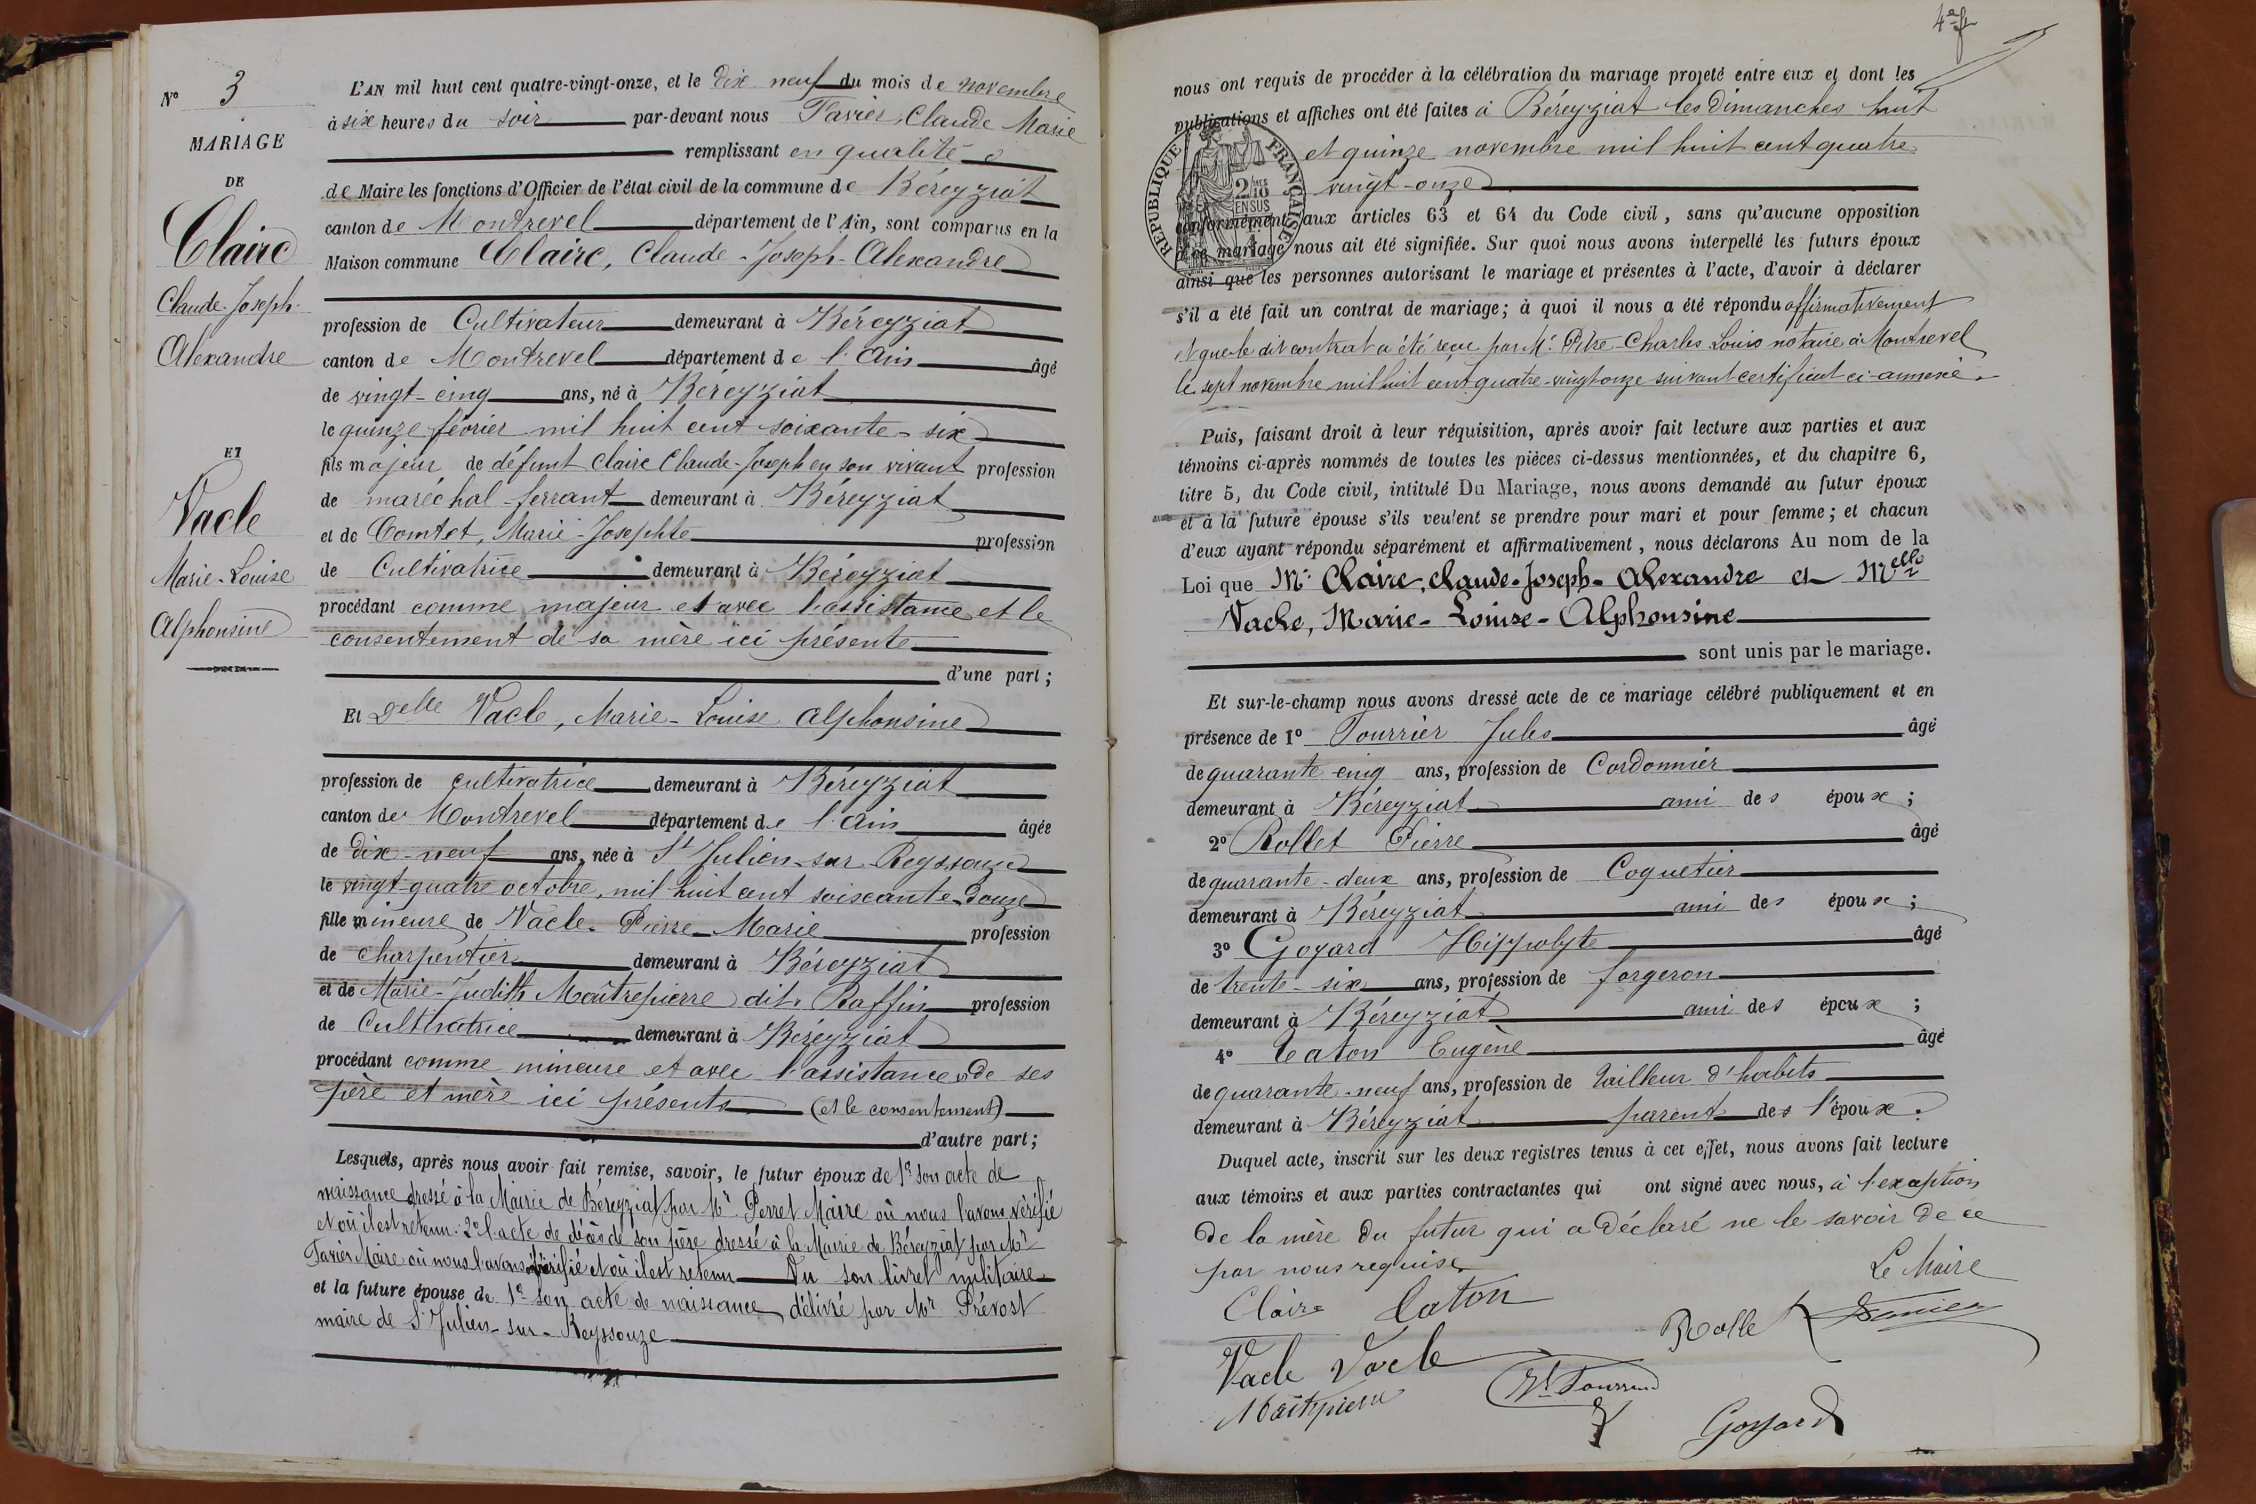 N° 3
MARIAGE
DE
Claire
Claude-Joseph-
Alexandre
ET
Vacle
Marie-Louise
Alphonsine
L'AN mil huit cent quatre-vingt-onze, et le dix neuf du mois de novembre
à six heures du soir par-devant nous Favier, Claude Marie
remplissant en qualité
de Maire les fonctions d'Officier de l'état civil de la commune de Béreyziat
canton de Montrevel département de l'Ain, sont comparus en la
Maison commune Claire, Claude-Joseph-Alexandre
profession de Cultivateur demeurant à Béreyziat
canton de Montrevel département de l'Ain âgé
de vingt-cinq ans, né à Béreyziat
le quinze février mil huit cent soixante-six
fils majeur de défunt Claire Claude-Joseph en son vivant profession
de maréchal-ferrant demeurant à Béreyziat
et de Comtet, Marie-Josephte profession
de Cultivatrice demeurant à Béreyziat
procédant comme majeur et avec l'assistance et le
consentement de sa mère ici présente
d'une part;
Et Delle Vacle, Marie-Louise Alphonsine
profession de cultivatrice demeurant à Béreyziat
canton de Montrevel département de l'Ain âgée
de dix-neuf ans, née à St Julien-sur-Reyssouze
le vingt-quatre octobre, mil huit cent soixante-douze
fille mineure de Vacle Pierre-Marie profession
de charpentier demeurant à Béreyziat
et de Marie-Judith Maîtrepierre dit Raffin profession
de Cultivatrice demeurant à Béreyziat
procédant comme mineure et avec l'assistance de ses
père et mère ici présents (et le consentement)
d'autre part;
Lesquels, après nous avoir fait remise, savoir, le futur époux de 1° son acte de
naissance dressé à la Mairie de Béreyziat par Mr Perret Maire où nous l'avons vérifié
et où il est retenu. 2° l'acte de décès de son père dressé à la Mairie de Béreyziat par Mr
Favier Maire où nous l'avons vérifié et où il est retenu Vu son livret militaire
et la future épouse de 1° son acte de naissance délivré par Mr Prévost
maire de St Julien-sur-Reyssouze
nous ont requis de procéder à la célébration du mariage projeté entre eux et dont les
publications et affiches ont été faites à Béreyziat les Dimanches huit
et quinze novembre mil huit cent quatre
vingt-onze
RÉPUBLIQUE FRANÇAISE
2/10 EN SUS
conformément aux articles 63 et 64 du Code civil, sans qu'aucune opposition
à ce mariage nous ait été signifiée. Sur quoi nous avons interpellé les futurs époux
ainsi que les personnes autorisant le mariage et présentes à l'acte, d'avoir à déclarer
s'il a été fait un contrat de mariage; à quoi il nous a été répondu affirmativement
et que le dit contrat a été reçu par Me Pitre Charles Louis notaire à Montrevel
le sept novembre mil huit cent quatre-vingt onze suivant certificat ci-annexé.
Puis, faisant droit à leur réquisition, après avoir fait lecture aux parties et aux
témoins ci-après nommés de toutes les pièces ci-dessus mentionnées, et du chapitre 6,
titre 5, du Code civil, intitulé Du Mariage, nous avons demandé au futur époux
et à la future épouse s'ils veulent se prendre pour mari et pour femme; et chacun
d'eux ayant répondu séparément et affirmativement, nous déclarons Au nom de la
Loi que Mr Claire, Claude-Joseph-Alexandre et Melle
Vacle, Marie-Louise-Alphonsine
sont unis par le mariage.
Et sur-le-champ nous avons dressé acte de ce mariage célébré publiquement et en
présence de 1° Tourrier Jules âgé
de quarante cinq ans, profession de Cordonnier
demeurant à Béreyziat ami des époux;
2° Rollet Pierre âgé
de quarante-deux ans, profession de Coquetier
demeurant à Béreyziat ami des époux;
3° Goyard Hippolyte âgé
de trente-six ans, profession de forgeron
demeurant à Béreyziat ami des époux;
4° Caton Eugène âgé
de quarante-neuf ans, profession de tailleur d'habits
demeurant à Béreyziat parent des l'époux.
Duquel acte, inscrit sur les deux registres tenus à cet effet, nous avons fait lecture
aux témoins et aux parties contractantes qui ont signé avec nous, à l'exception
de la mère du futur qui a déclaré ne le savoir de ce
par nous requise.
Le Maire
Claire Caton
Rollet Favier
Vacle Vacle
Jl Tourrier
Maitrpierre
Goyard